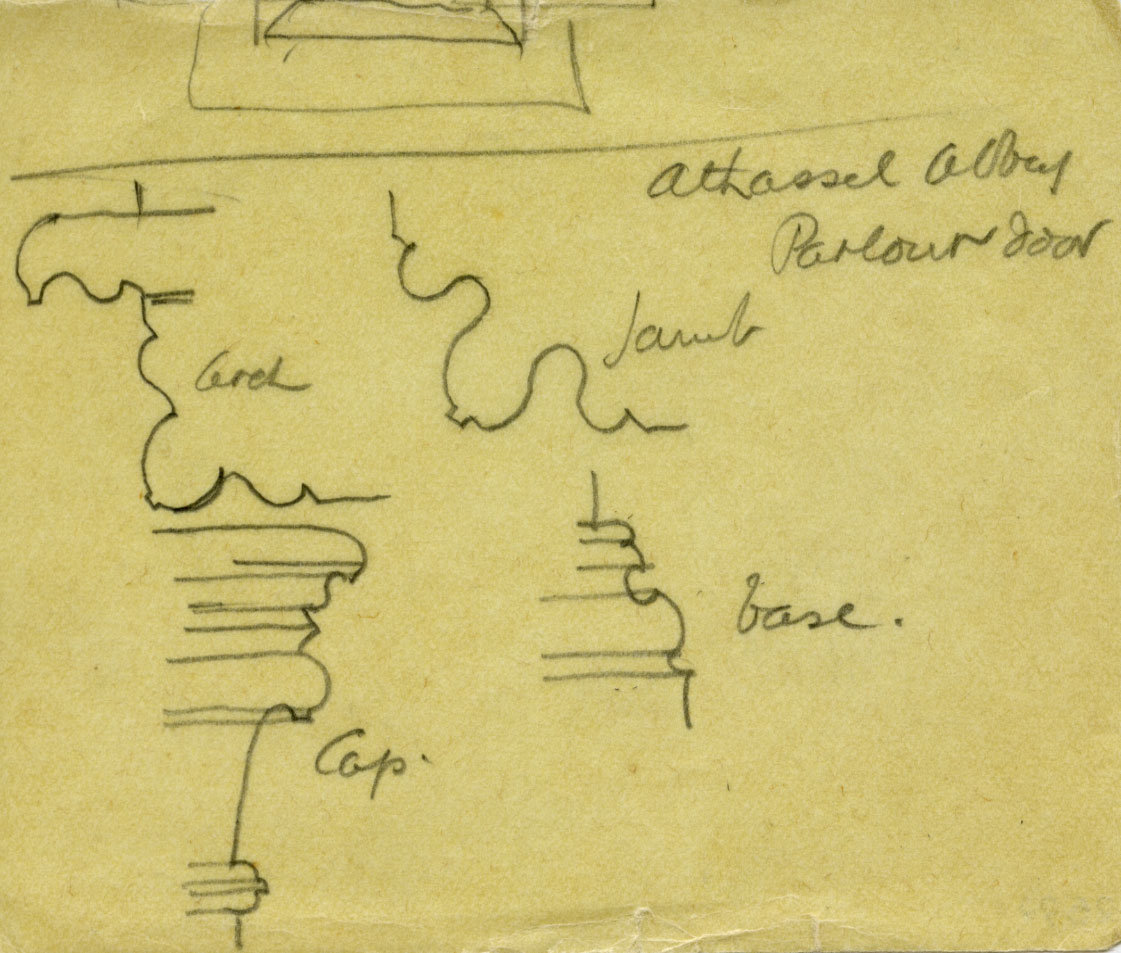 Athassel Abbey
Parlour door
Jamb
Arch
base.
Cap.